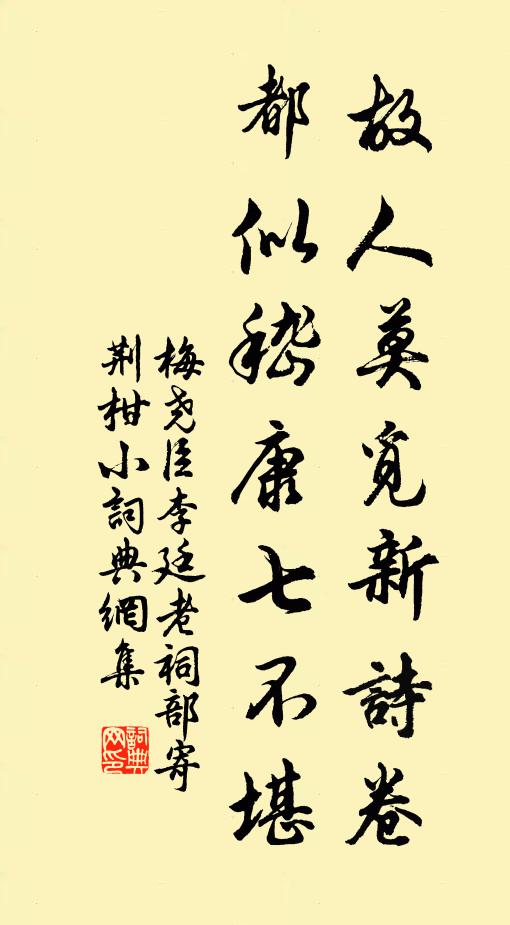 故人莫覓新詩卷
都似嵇康七不堪
梅堯臣李廷老祠部寄
荆柑小詞典網集
詞典網印